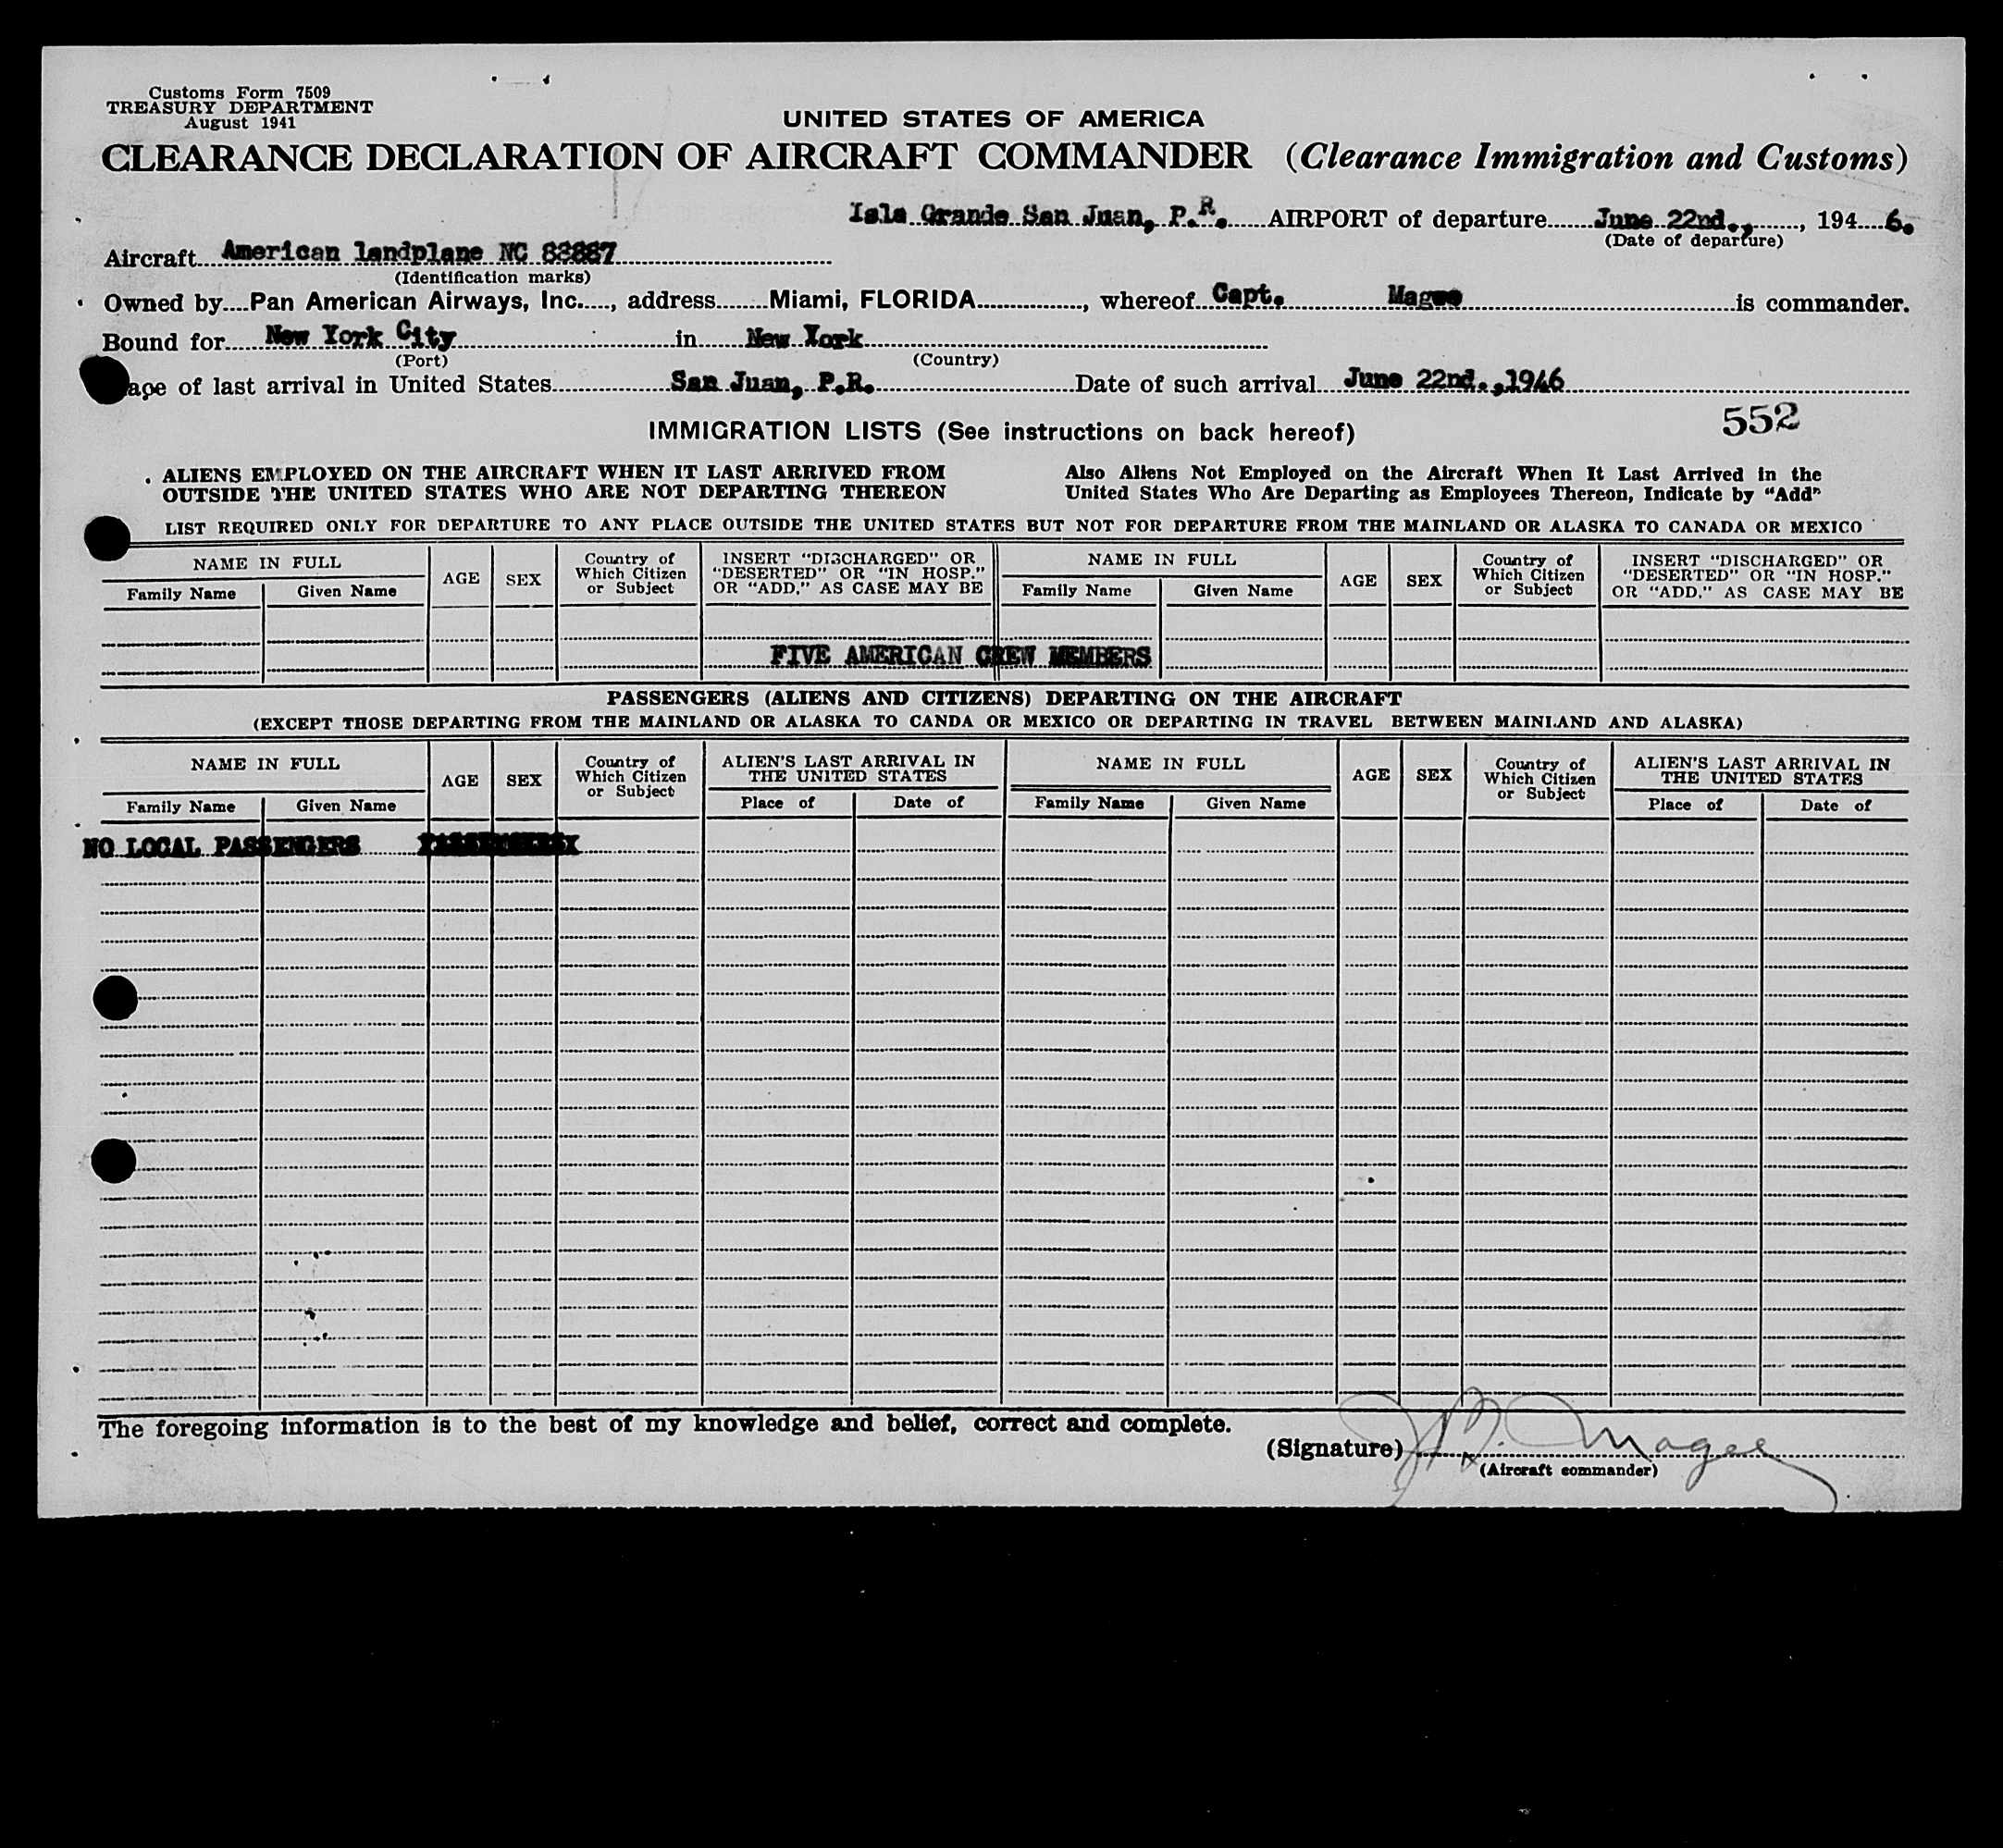 Customs Form 7509
TREASURY DEPARTMENT
August 1941
UNITED STATES OF AMERICA
CLEARANCE DECLARATION OF AIRCRAFT COMMANDER (Clearance Immigration and Customs)
Isla Grande San Juan, P.R. AIRPORT of departure June 22nd., , 194 6.
(Date of departure)
Aircraft American landplane NC
(Identification marks)
Owned by Pan American Airways, Inc. , address Miami, FLORIDA , whereof Capt. Magee is commander.
Bound for New York City in New York
(Port) (Country)
ace of last arrival in United States San Juan, P.R. Date of such arrival June 22nd.,1946
552
IMMIGRATION LISTS (See instructions on back hereof)
ALIENS EMPLOYED ON THE AIRCRAFT WHEN IT LAST ARRIVED FROM
OUTSIDE THE UNITED STATES WHO ARE NOT DEPARTING THEREON
Also Aliens Not Employed on the Aircraft When It Last Arrived in the
United States Who Are Departing as Employees Thereon, Indicate by "Add"
LIST REQUIRED ONLY FOR DEPARTURE TO ANY PLACE OUTSIDE THE UNITED STATES BUT NOT FOR DEPARTURE FROM THE MAINLAND OR ALASKA TO CANADA OR MEXICO
NAME IN FULL
Family Name Given Name
AGE
SEX
Country of
Which Citizen
or Subject
INSERT "DISCHARGED" OR
"DESERTED" OR "IN HOSP."
OR "ADD," AS CASE MAY BE
NAME IN FULL
Family Name Given Name
AGE
SEX
Country of
Which Citizen
or Subject
INSERT "DISCHARGED" OR
"DESERTED" OR "IN HOSP."
OR "ADD." AS CASE MAY BE
FIVE AMERICAN CREW MEMBERS
PASSENGERS (ALIENS AND CITIZENS) DEPARTING ON THE AIRCRAFT
(EXCEPT THOSE DEPARTING FROM THE MAINLAND OR ALASKA TO CANDA OR MEXICO OR DEPARTING IN TRAVEL BETWEEN MAINLAND AND ALASKA)
NAME IN FULL
Family Name Given Name
AGE
SEX
Country of
Which Citizen
or Subject
ALIEN'S LAST ARRIVAL IN
THE UNITED STATES
Place of Date of
NAME IN FULL
Family Name Given Name
AGE
SEX
Country of
Which Citizen
or Subject
ALIEN'S LAST ARRIVAL IN
THE UNITED STATES
Place of Date of
NO LOCAL PASSENGERS
The foregoing information is to the best of my knowledge and belief, correct and complete.
(Signature) Magee
(Aircraft commander)